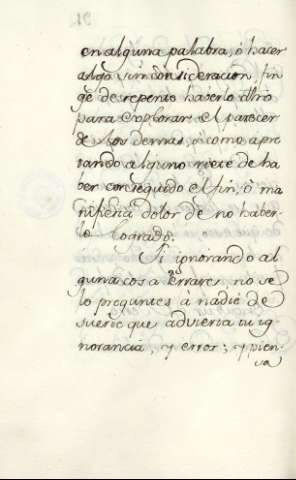 en alguna palabra, ó hacer
algo sin consideracion, fin
ge de repente haverlo dho
para explorar el parecer
de los demas, ó como apro
vando alguno riete de ha
ber conseguido el fin, ó ma
nifiesta dolor de no haber-
lo logrado.
Si ignorando al
guna cosa errares, no se
lo preguntes á nadie de
suerte que advierta tu ig-
norancia, y error; y pien-
sa